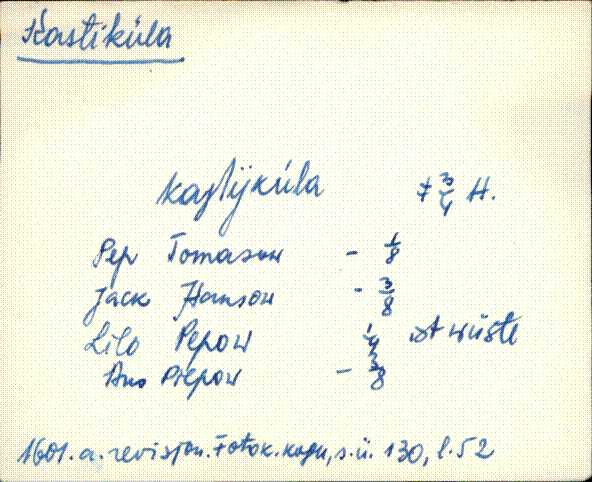 Kastiküla
Kastijküla 7 3/4 H.
Pep Tomason - 1/8
Jack Hanson - 3/8
Lilo Pepow 1/4 ist wüste
Ano Piepow - 3/8
1601. a. revisjon. Fotok. kogu, s.ü. 130, l. 52